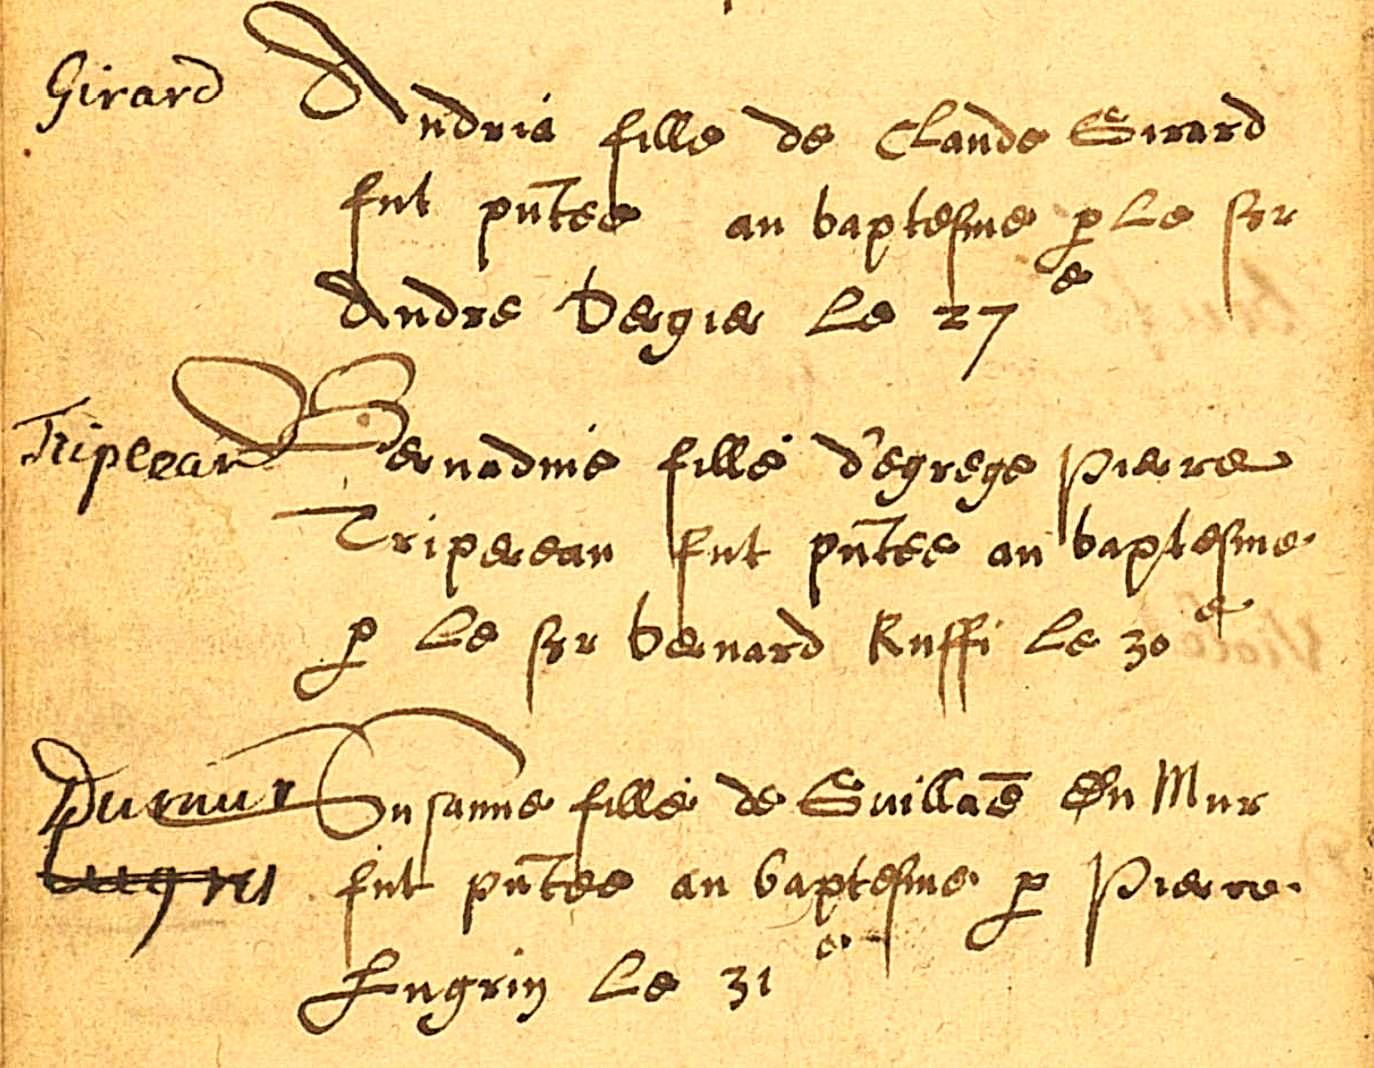 Girard Andria fille de Claude Girard
fut pñtee au baptesme p le sr
Andre Vergier le 27e
Tripereau Bernadine fille d'egrege Pierre
Tripereau fut pñtee au baptesme
p le sr Bernard Ruffi le 30e
Dumur Susanne fille de Guillaē Du Mur
Lugrin fut pñtee au baptesme p Pierre
Lugrin le 31e